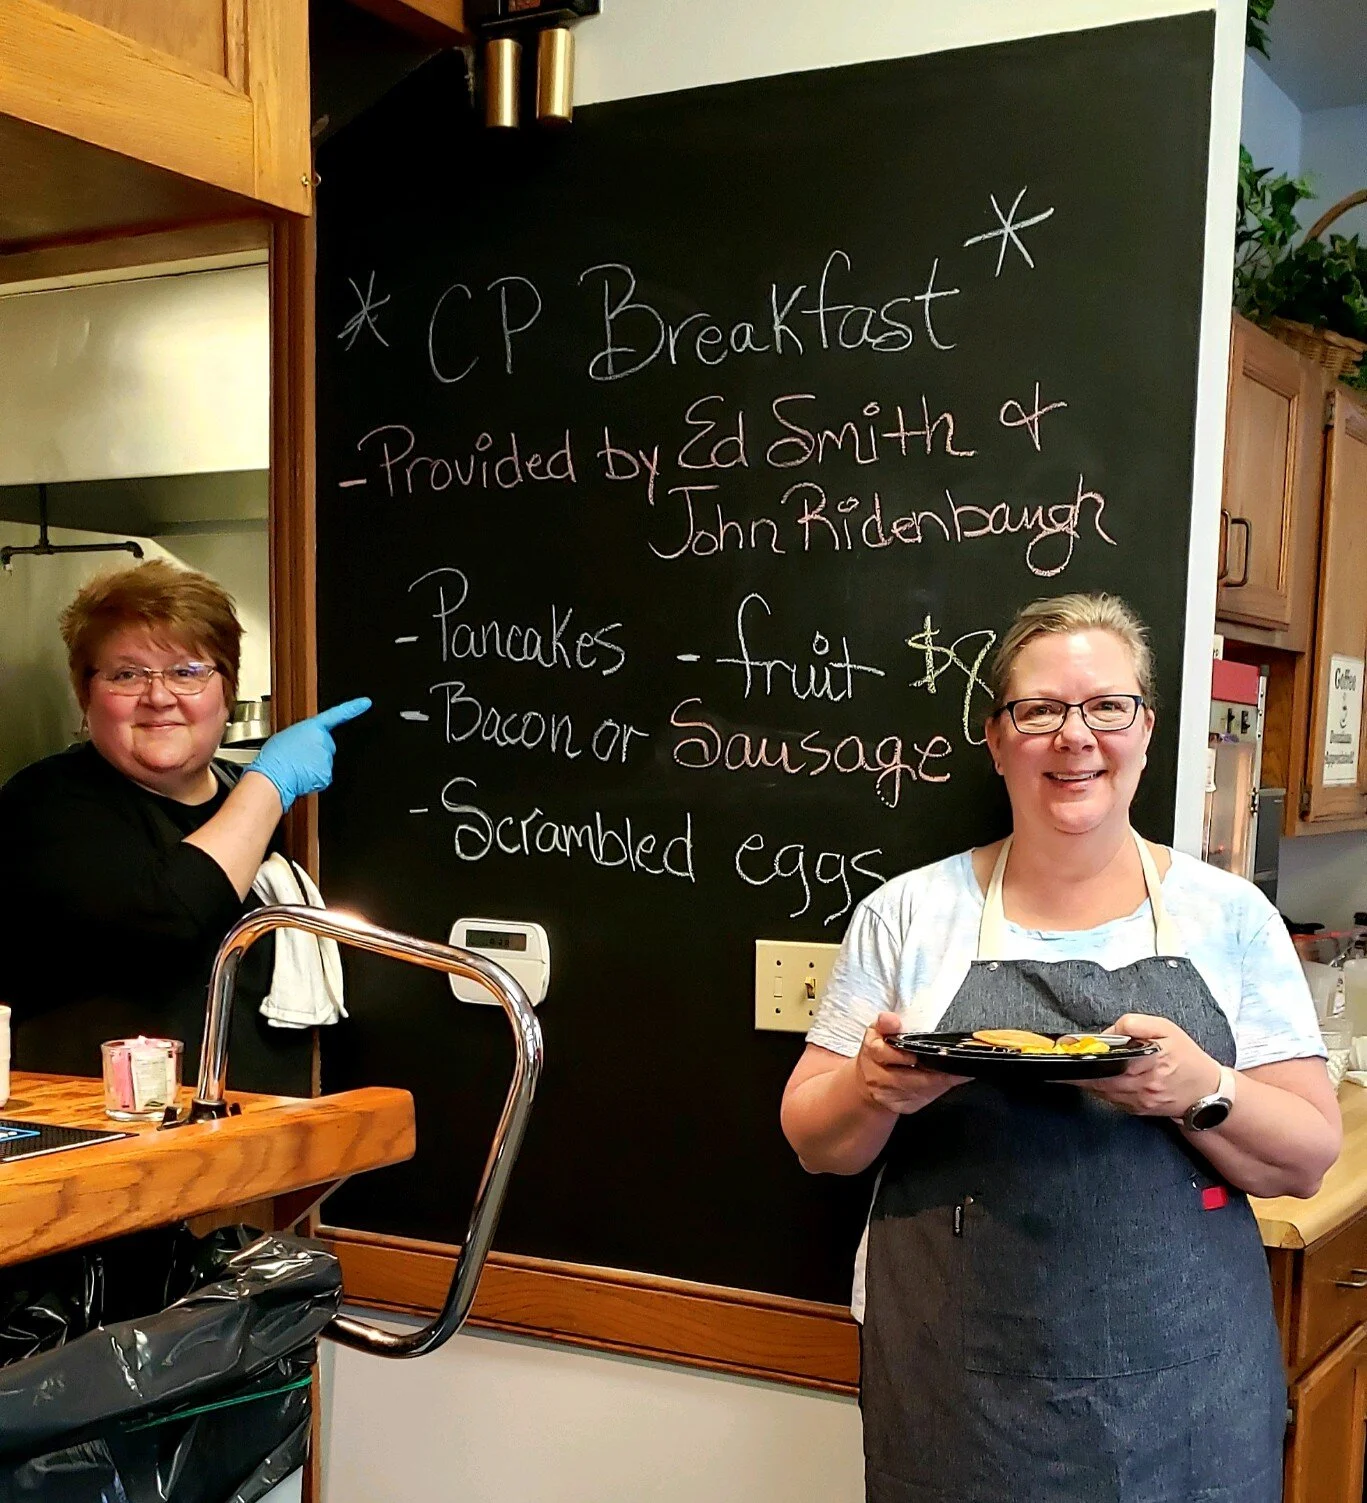 * CP Breakfast *
- Provided by Ed Smith &
John Ridenbaugh
- Pancakes - fruit $8
- Bacon or Sausage
- Scrambled eggs
Coffee